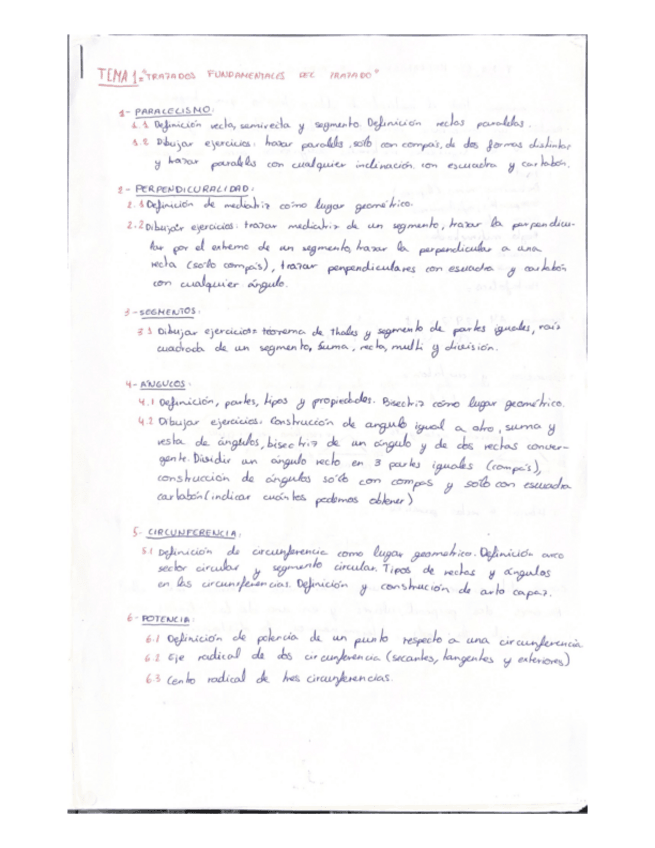 TEMA 1: "TRAZADOS FUNDAMENTALES DEL TRAZADO"
1- PARALELISMO:
1.1 Definición recta, semirecta y segmento. Definición rectas paralelas.
1.2 Dibujar ejercicios: trazar paralelas solo con compás, de dos formas distintas
y trazar paralelas con cualquier inclinación con escuadra y cartabón.
2- PERPENDICURALIDAD:
2.1 Definición de mediatriz como lugar geométrico.
2.2 Dibujar ejercicios: trazar mediatriz de un segmento, trazar la perpendicu-
lar por el extremo de un segmento, trazar la perpendicular a una
recta (solo compás), trazar perpendiculares con escuadra y cartabón
con cualquier ángulo.
3- SEGMENTOS:
3.1 Dibujar ejercicios: teorema de Thales y segmento de partes iguales, raíz
cuadrada de un segmento, suma, recta, multi y división.
4- ÁNGULOS:
4.1 Definición, partes, tipos y propiedades. Bisectriz como lugar geométrico.
4.2 Dibujar ejercicios: Construcción de angulo igual a otro, suma y
resta de ángulos, bisectriz de un ángulo y de dos rectas conver-
gente. Dividir un ángulo recto en 3 partes iguales (compás),
construcción de ángulos solo con compas y solo con escuadra
cartabón (indicar cuántos podemos obtener)
5- CIRCUNFERENCIA:
5.1 Definición de circunferencia como lugar geometrico. Definición arco
sector circular y segmento circular. Tipos de rectas y ángulos
en las circunferencias. Definición y construción de arto capaz.
6- POTENCIA:
6.1 Definición de potencia de un punto respecto a una circunferencia
6.2 Eje radical de dos circunferencia (secantes, tangentes y exteriores)
6.3 Cento radical de tres circunferencias.